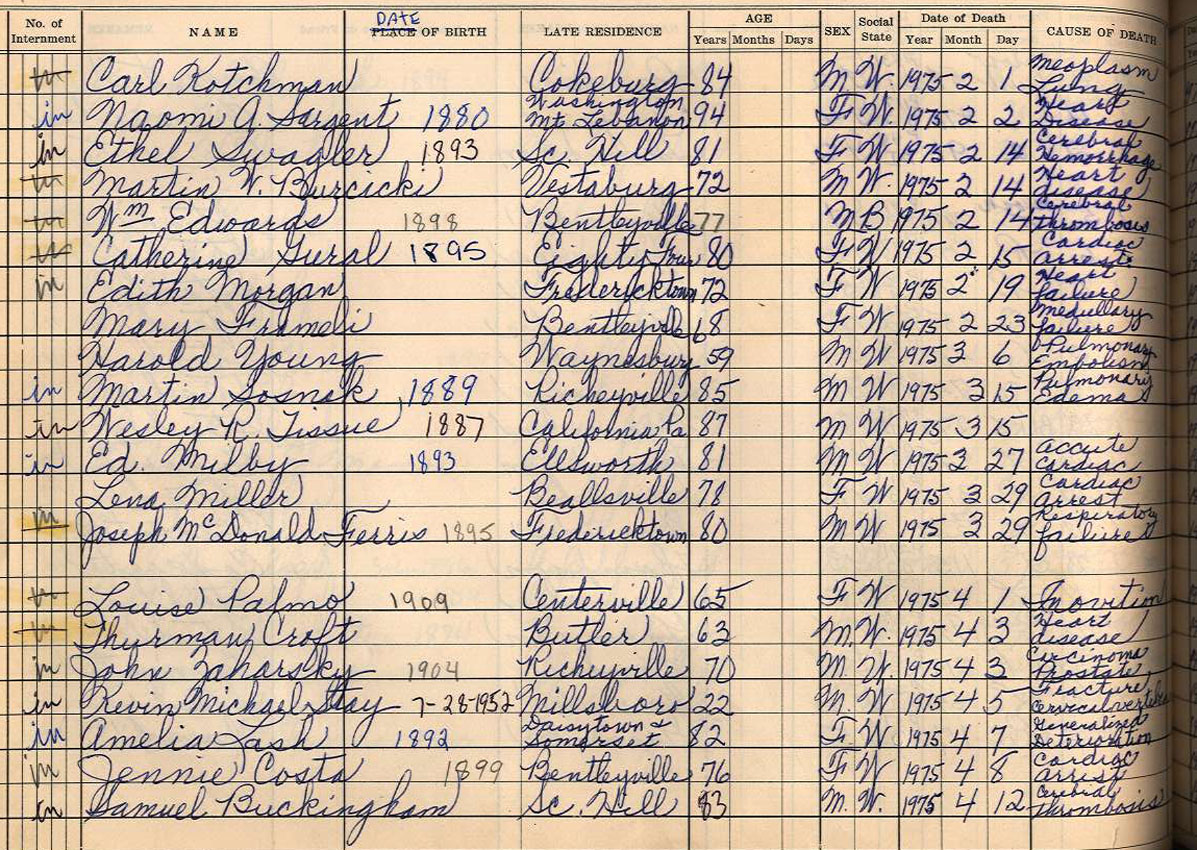 No. of Internment NAME DATE PLACE OF BIRTH LATE RESIDENCE AGE Years Months Days SEX Social State Date of Death Year Month Day CAUSE OF DEATH
in Carl Kotchman Cokeburg 84 M W. 1975 2 1 Neoplasm Lung
in Naomi A. Sargent 1880 Washington Mt. Lebanon 94 F W. 1975 2 2 Heart Disease
in Ethel Swagler 1893 Sc. Hill 81 F W. 1975 2 14 Cerebral Hemorrhage
in Martin W. Burcicki Vestaburg 72 M W. 1975 2 14 Heart disease
in Wm Edwards 1898 Bentleyville 77 M B 1975 2 14 Cerebral thrombosis
Catherine Gural 1895 Eighty Four 80 F W 1975 2 15 Cardiac arrest
in Edith Morgan Fredericktown 72 F W 1975 2 19 Heart failure
Mary Frameli Bentleyville 68 F W 1975 2 23 Medullary failure
Harold Young Waynesburg 59 M W 1975 3 6 Pulmonary Embolism
in Martin Sosnak 1889 Richeyville 85 M W 1975 3 15 Pulmonary Edema
in Wesley R. Tissue 1887 California Pa 87 M W 1975 3 15
in Ed. Milby 1893 Ellsworth 81 M W. 1975 3 27 Accute Cardiac
Lena Miller Beallsville 78 F W 1975 3 29 Cardiac Arrest
in Joseph McDonald Ferris 1895 Fredericktown 80 M W 1975 3 29 Respiratory failure
in Louise Palmo 1909 Centerville 65 F W. 1975 4 1 Inovition
in Thurman Croft Butler 63 M. W. 1975 4 3 Heart disease
in John Zaharsky 1904 Richeyville 70 M. W. 1975 4 3 Carcinoma Prostate
in Kevin Michael Stay 7-28-1952 Millsboro 22 M. W. 1975 4 5 Fracture cervical vertebra
in Amelia Lash 1892 Daisytown & Somerset 82 F W 1975 4 7 Generalized Deterioration
in Jennie Costa 1899 Bentleyville 76 F W 1975 4 8 Cardiac arrest
in Samuel Buckingham Sc. Hill 83 M. W. 1975 4 12 Cerebral thrombosis